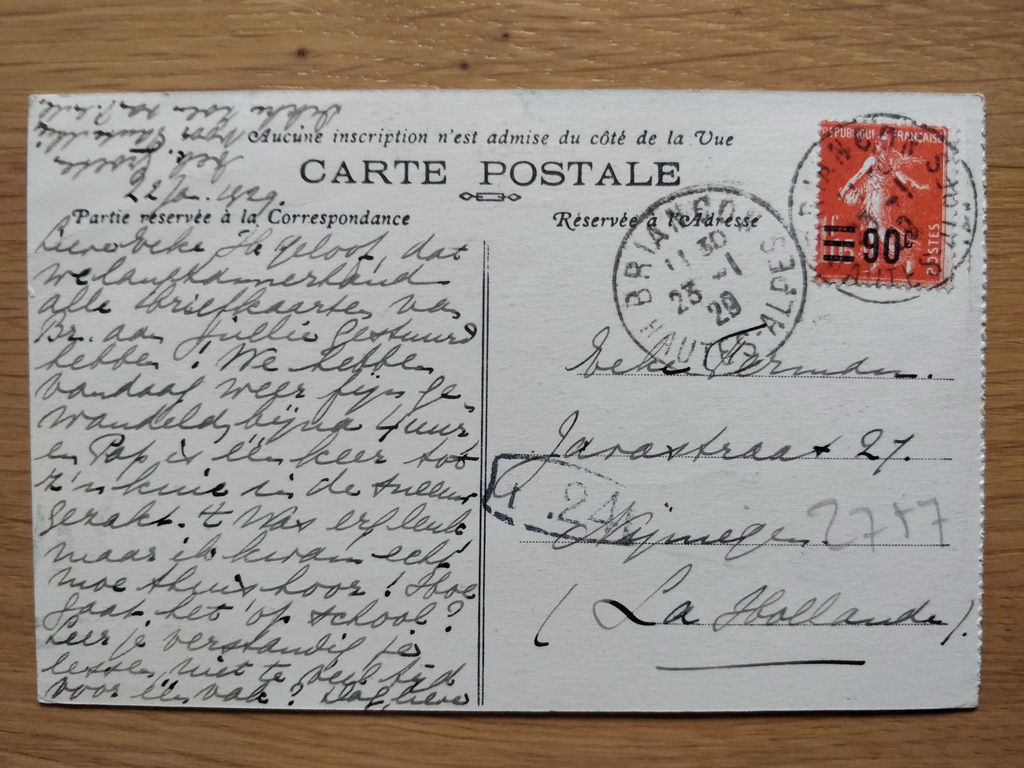 Aucune inscription n'est admise du côté de la Vue
CARTE POSTALE
22 Jan. 1929.
Partie réservée à la Correspondance
Réservée à l'Adresse
Lieve Eeke Ik geloof, dat
we langzamerhand
alle briefkaarten van
Br. aan jullie gestuurd
hebben! We hebben
vandaag weer fijn ge-
wandeld, bijna 4 uur
en Pap is één keer tot
z'n knie in de sneeuw
gezakt. 't Was erg leuk
maar ik kwam echt
moe thuis hoor! Hoe
gaat het op school?
Leer je verstandig je
lessen, niet te veel tijd
voor één vak? Dag, lieve
REPUBLIQUE FRANÇAISE
90c
POSTES
BRIANÇON
11 30
23 -1
29
HAUTES ALPES
Javastraat 27.
Nijmegen
(La Hollande).
T. 24